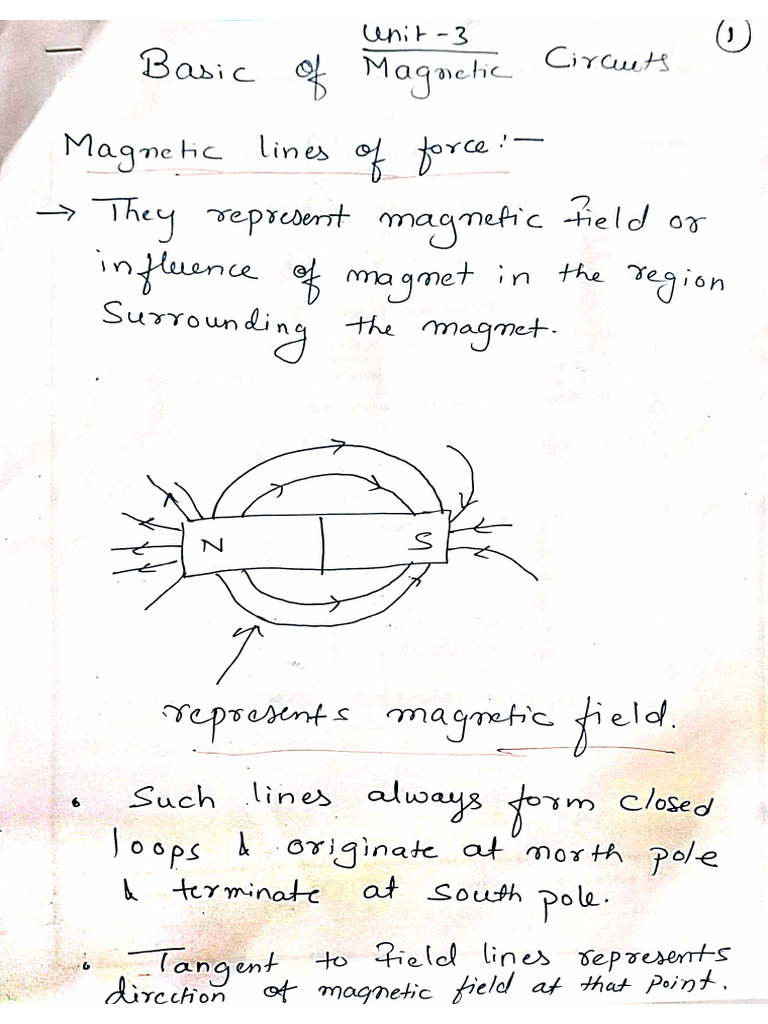 Unit-3
①
Basic of Magnetic Circuits
Magnetic lines of force:-
→ They represent magnetic field or
influence of magnet in the region
Surrounding the magnet.
N S
represents magnetic field.
• Such lines always form closed
loops & originate at north pole
& terminate at south pole.
• Tangent to field lines represents
direction of magnetic field at that point.